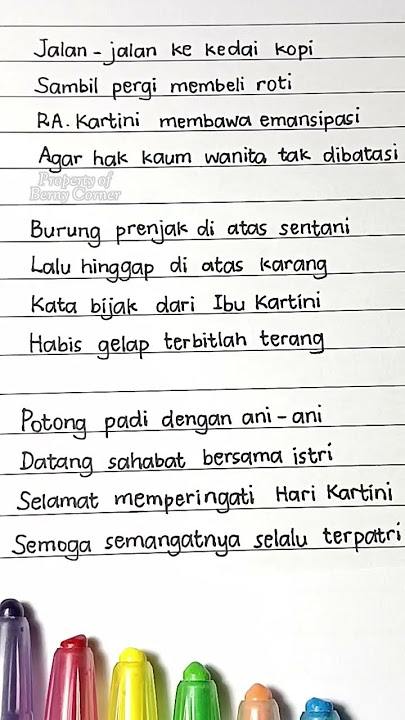 Jalan - jalan ke kedai kopi
Sambil pergi membeli roti
RA. Kartini membawa emansipasi
Agar hak kaum wanita tak dibatasi
Property of
Berny Corner
Burung prenjak di atas sentani
Lalu hinggap di atas karang
Kata bijak dari Ibu Kartini
Habis gelap terbitlah terang
Potong padi dengan ani - ani
Datang sahabat bersama istri
Selamat memperingati Hari Kartini
Semoga semangatnya selalu terpatri